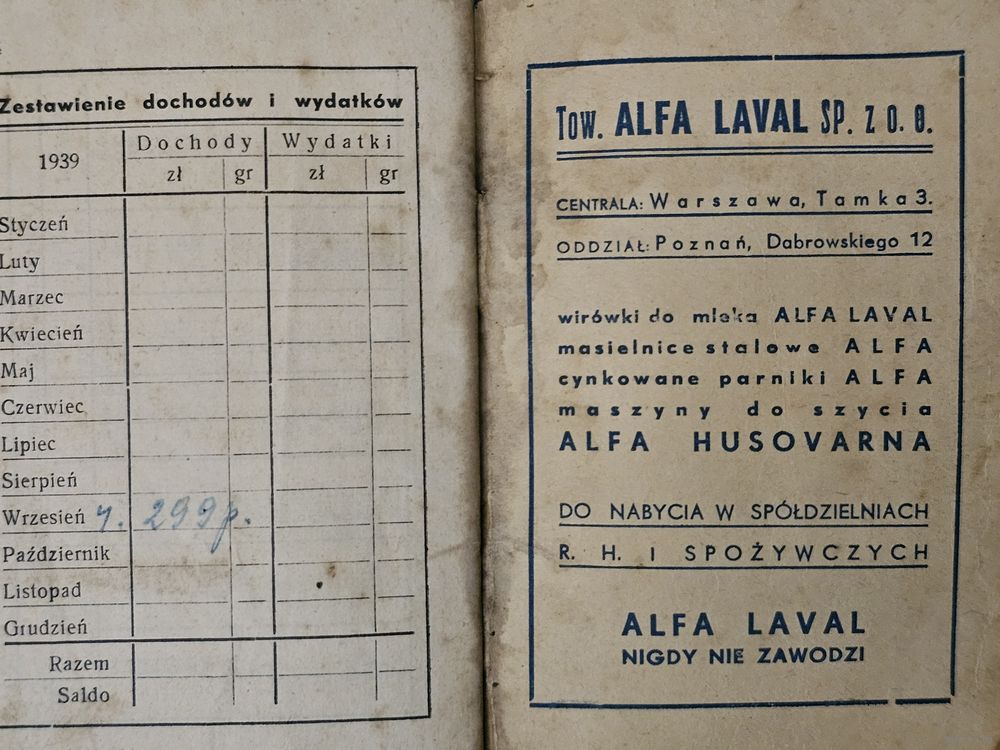 Zestawienie dochodów i wydatków
1939
Dochody Wydatki
zł gr zł gr
Styczeń
Luty
Marzec
Kwiecień
Maj
Czerwiec
Lipiec
Sierpień
Wrzesień 299
Październik
Listopad
Grudzień
Razem
Saldo
Tow. ALFA LAVAL SP. Z O. O.
CENTRALA: Warszawa, Tamka 3.
ODDZIAŁ: Poznań, Dabrowskiego 12
wirówki do mleka ALFA LAVAL
masielnice stalowe ALFA
cynkowane parniki ALFA
maszyny do szycia
ALFA HUSOVARNA
DO NABYCIA W SPÓŁDZIELNIACH
R. H. I SPOŻYWCZYCH
ALFA LAVAL
NIGDY NIE ZAWODZI